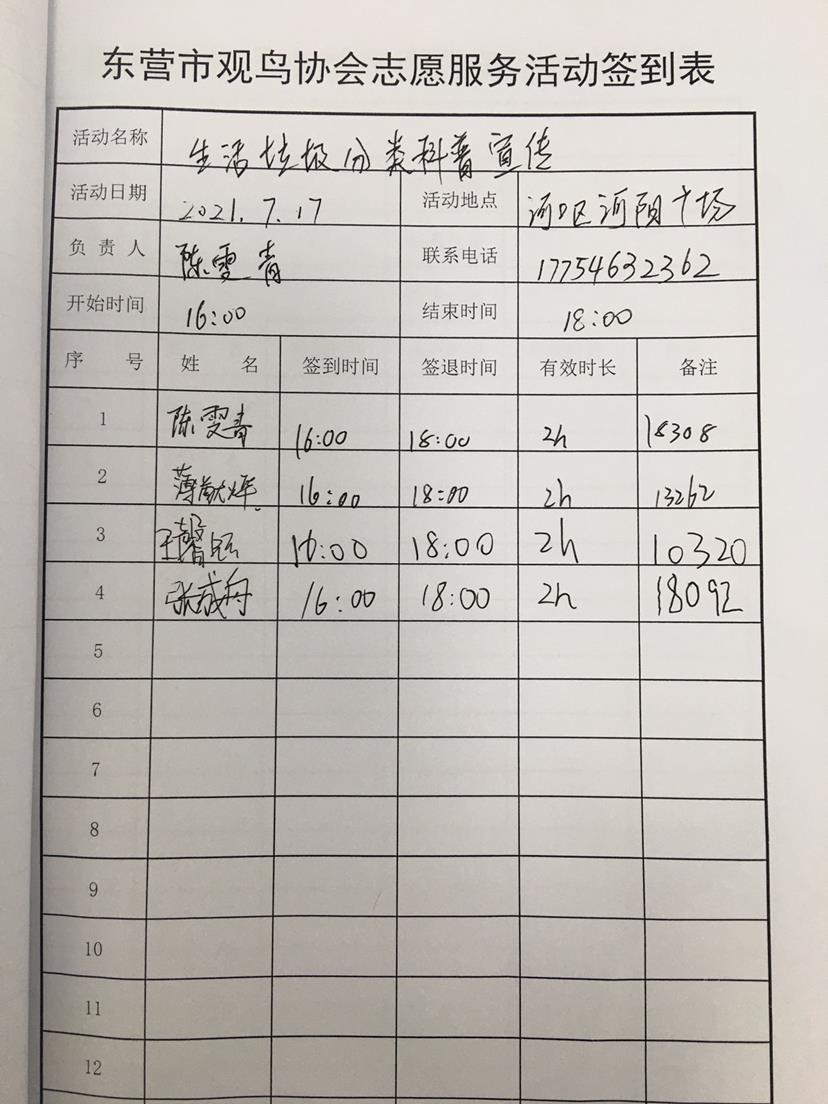 东营市观鸟协会志愿服务活动签到表
活动名称 生活垃圾分类科普宣传
活动日期 2021.7.17 活动地点 河口区河阳广场
负责人 陈雯青 联系电话 17754632362
开始时间 16:00 结束时间 18:00
序号 姓名 签到时间 签退时间 有效时长 备注
1 陈雯青 16:00 18:00 2h 18308
2 16:00 18:00 2h 13262
3 王馨钰 16:00 18:00 2h 10320
4 张成舟 16:00 18:00 2h 18092
5
6
7
8
9
10
11
12